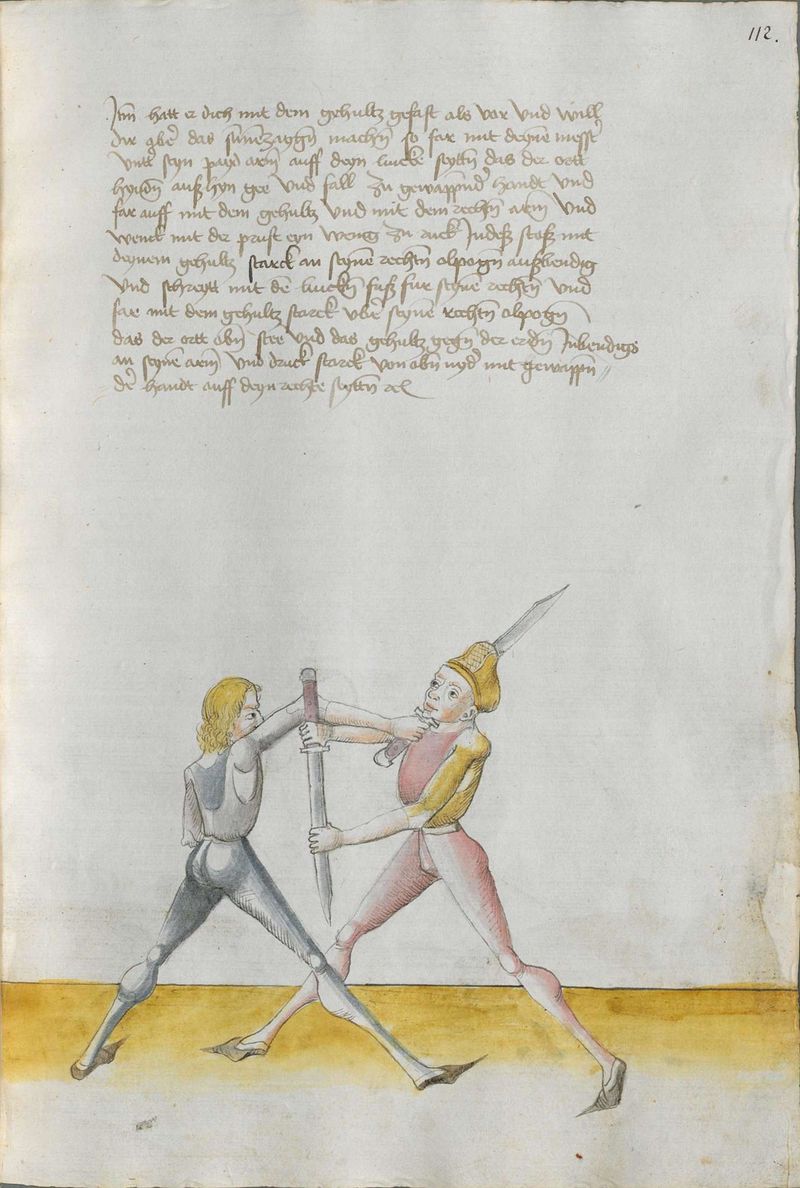 112.
Itm̄ hatt er dich mit dem gehultz gefast als vor vnd will
dir vbe᷑ das sun̄enzaggn̄ machn̄ so far mit deynē messe᷑
vntt᷑ seyn payd arm̄ auff deyn lincke seyttn̄ das der ortt
hindn̄ auß hyn gee vnd fall zu gewappnd᷑ handt vnd
far auff mit dem gehultz vnd mit dem rechtn̄ arm̄ vnd
wenck mit der prust eyn weng zu ruck Indeß stoß mit
deynem gehultz starck an seynē rechtn̄ elpogn̄ außwendig
vnd schreytt mit dē linckn̄ fuß fur seynē rechtn̄ vnd
far mit dem gehultz starck vbe᷑ seynē rechtn̄ elpogn̄
das der ortt obn̄ stee vnd das gehultz gegn̄ der erdn̄ Inwendigs
an seynē arm̄ vnd druck starck von obn̄ nyd᷑ mit gewappn̄ //
de᷑ handt auff deyn rechte seyttn̄ rc